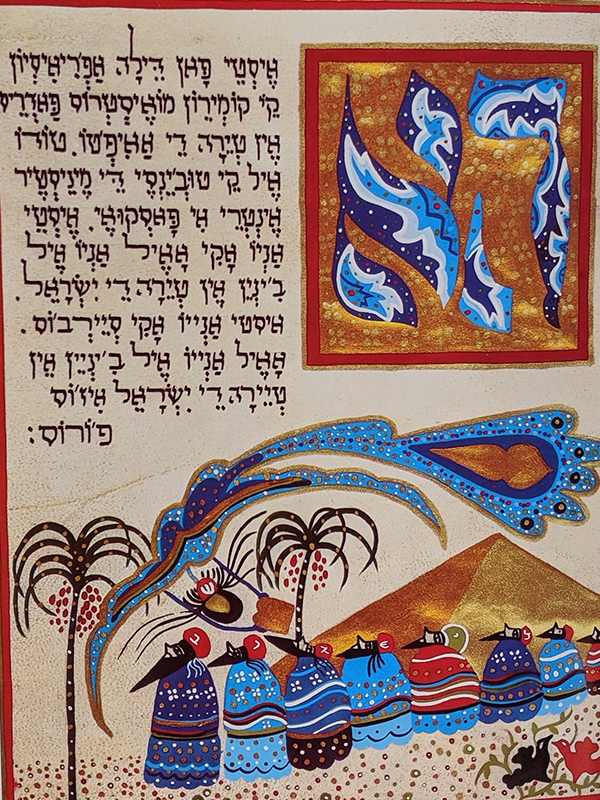 הא
אֵיסְטֵי פָּאן דֵילָה אַפְרִיאִיסְיוֹן
קֵי קוֹמִירוֹן מוֹאֵיסְטְרוֹס פַּאדְרֵיס
אֵין טְיֵרָה דֵי אַאִיפְטוֹ. טוֹדוֹ
אֵיל קֵי טוּבְ׳יֵנְסֵי דֵי מֵינֵיסְטֵיר
אֵינְטְרֵי אִי פָּאסְקוּאֵי. אֵיסְטֵי
אַנְיוֹ אָקִי אָאֵיל אַנְיוֹ אֵיל
בִ׳ינְיֵן אֵין טְיֵרָה דֵי יִשְׂרָאֵל.
אִיסְטִי אַנְייוֹ אָקִי סְיֵירְבוֹס.
אָאֵיל אַנְייוֹ אֵיל בִ׳ינְיֵין אֵין
טְיֵירָה דֵי יִשְׂרָאֵל אִיזְ׳וֹס
פ׳וֹרוֹס: